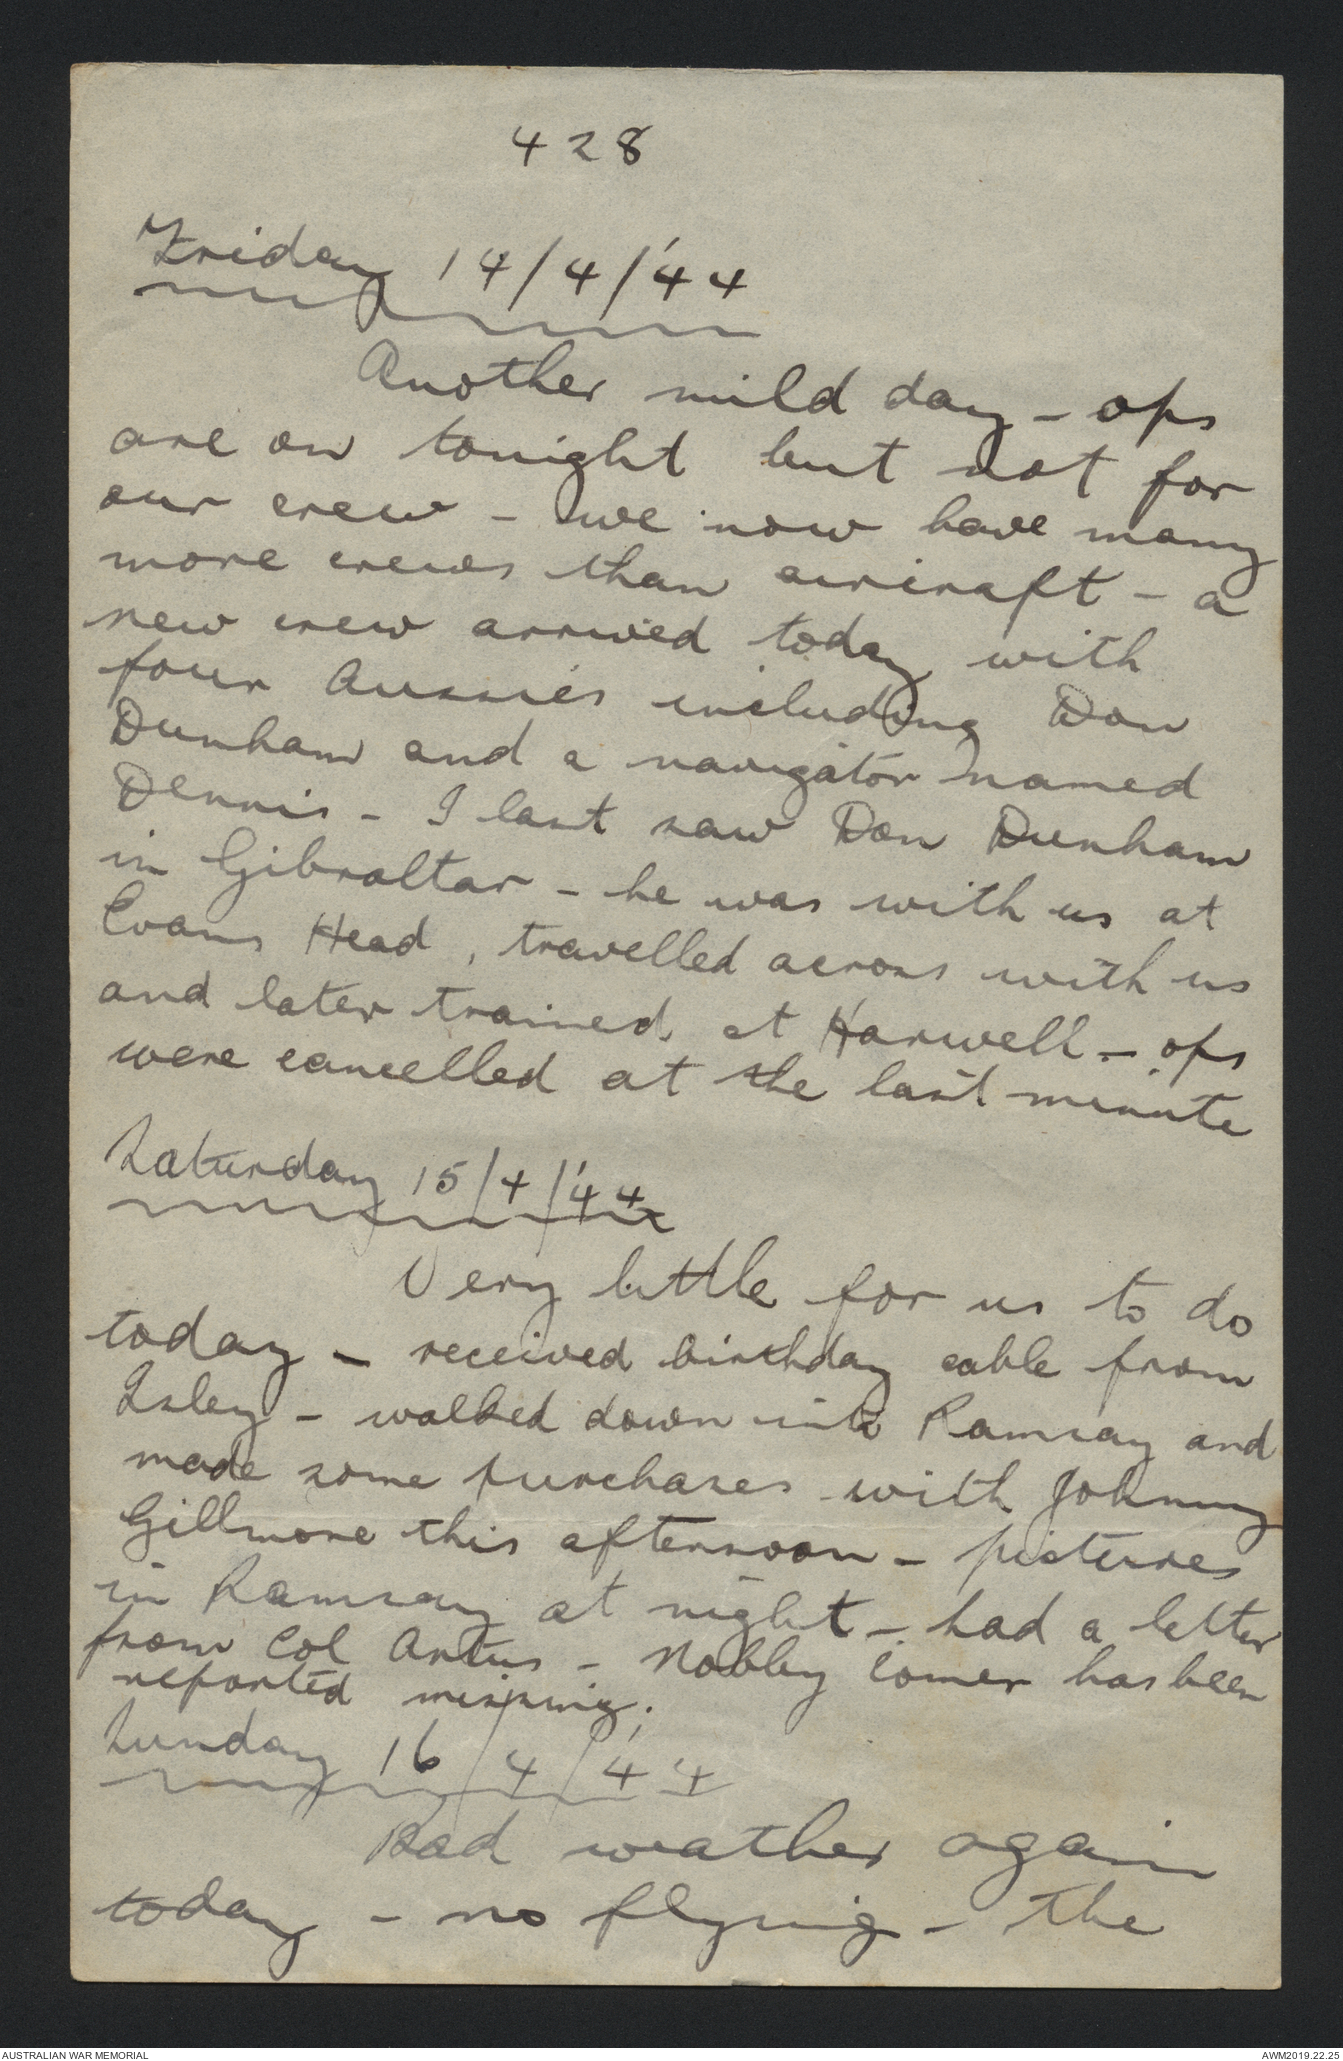 428
Friday 14/4/'44
Another mild day - ops
are on tonight but not for
our crew - we now have many
more crews than aircraft - a
new crew arrived today with
four Aussies including Don
Dunham and a navigator named
Dennis - I last saw Don Dunham
in Gibraltar - he was with us at
Evans Head, travelled across with us
and later trained at Harwell - ops
were cancelled at the last minute
Saturday 15/4/'44
Very little for us to do
today - received birthday cable from
- walked down into Ramsay and
made some purchases with Johnny
Gillmore this afternoon - pictures
in Ramsay at night - had a letter
from Col Artus - Nobby Comer has been
reported missing.
Sunday 16/4/'44
Bad weather again
today - no flying - the
AUSTRALIAN WAR MEMORIAL
AWM2019.22.25